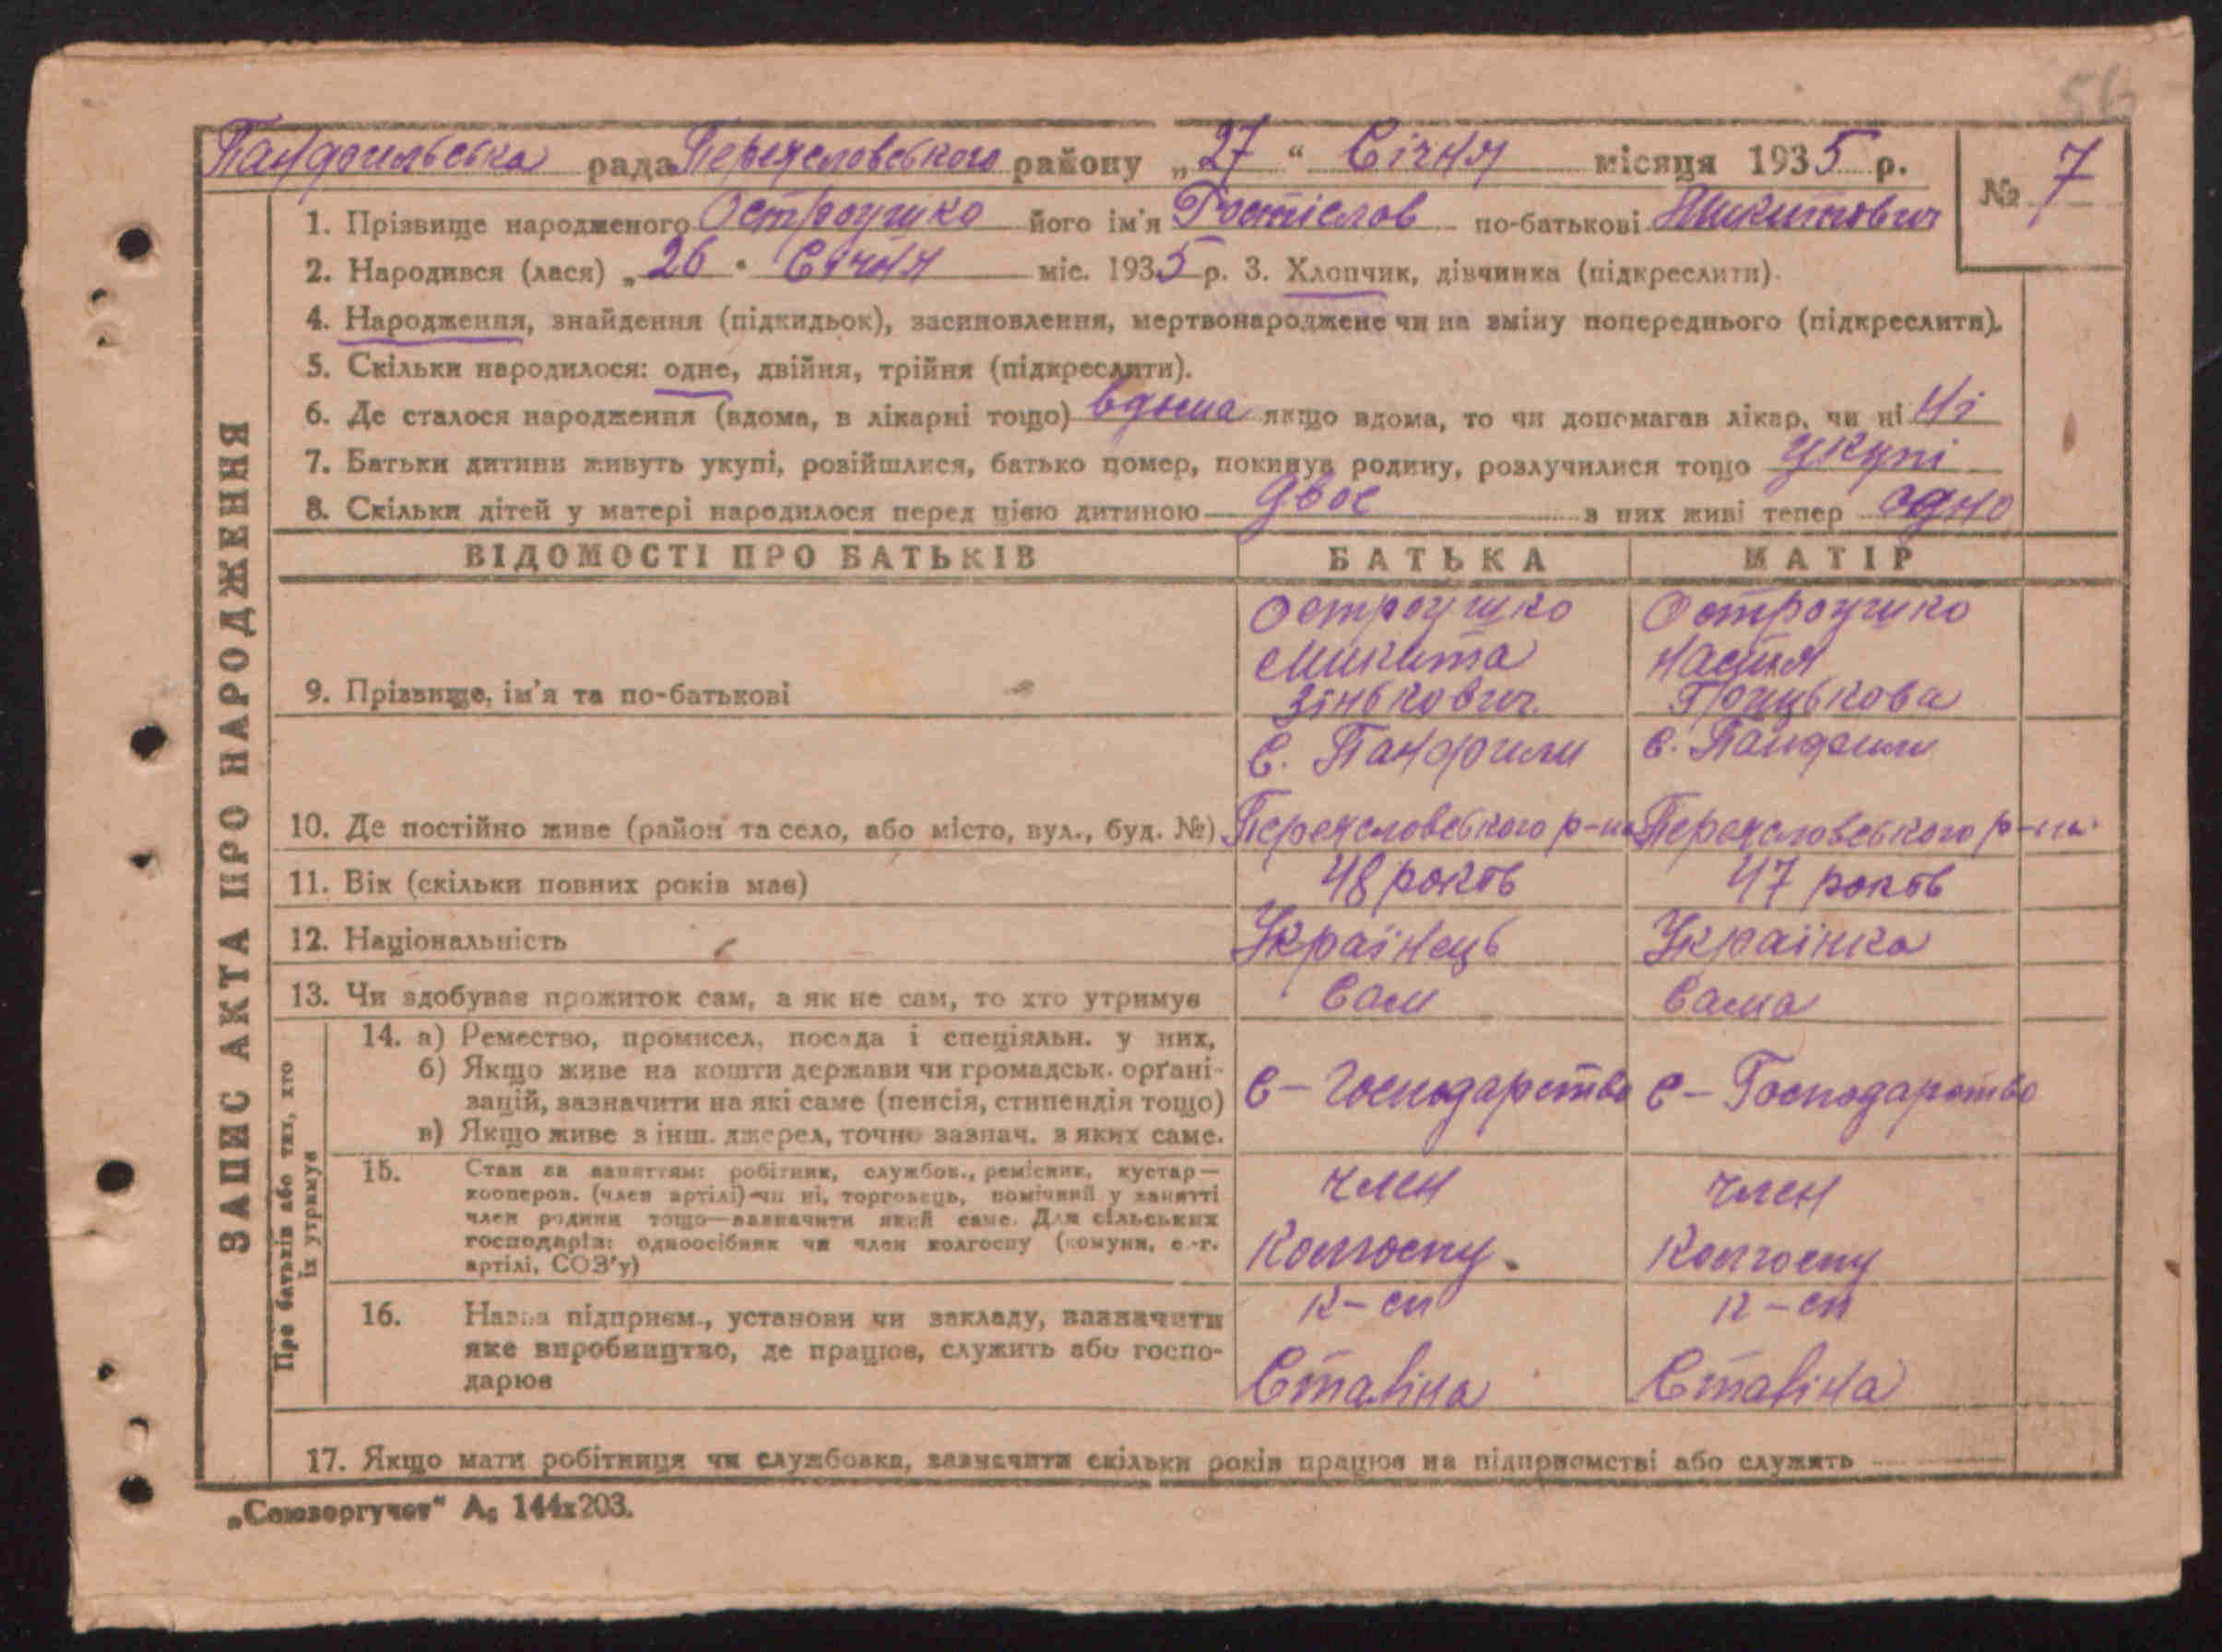 56
Панфильська рада Переяславського району „27“ Січня місяця 1935 р.
№ 7
1. Прізвище народженого Остроушко його ім'я Ростіслав по-батькові Микитович
2. Народився (лася) „26“ Січня міс. 1935 р. 3. Хлопчик, дівчинка (підкреслити).
4. Народження, знайдення (підкидьок), засиновлення, мертвонароджене чи на зміну попереднього (підкреслити).
5. Скільки народилося: одне, двійня, трійня (підкреслити).
6. Де сталося народження (вдома, в лікарні тощо) вдома якщо вдома, то чи допомагав лікар, чи ні Ні
7. Батьки дитини живуть укупі, розійшлися, батько помер, покинув родину, розлучилися тощо укупі
8. Скільки дітей у матері народилося перед цією дитиною двоє з них живі тепер одно
ЗАПИС АКТА ПРО НАРОДЖЕННЯ
ВІДОМОСТІ ПРО БАТЬКІВ БАТЬКА МАТІР
Остроушко Остроушко
Микита Настя
9. Прізвище, ім'я та по-батькові Зінькович Грицькова
С. Панфили С. Панфили
10. Де постійно живе (район та село, або місто, вул., буд. №) Переяславського р-на Переяславського р-на
11. Вік (скільки повних років має) 48 років 47 років
12. Національність Українець Українка
13. Чи здобуває прожиток сам, а як не сам, то хто утримує Сам Сама
Про батьків або тих, хто їх утримує
14. а) Ремество, промисел, посада і спеціяльн. у них,
б) Якщо живе на кошти держави чи громадськ. орґані-
зацій, зазначити на які саме (пенсія, стипендія тощо) С – Господарство С – Господарство
в) Якщо живе з інш. джерел, точно зазнач. з яких саме.
15. Стан за заняттям: робітник, службов., ремісник, кустар—
кооперов. (член артілі)—чи ні, торговець, помічний у занятті член член
член родини тощо—зазначити який саме. Для сільських
господарів: одноосібник чи член колгоспу (комуни, с.-г. Колгоспу. Колгоспу
артілі, СОЗ'у)
к-сп к-сп
16. Назва підприєм., установи чи закладу, зазначити
яке виробництво, де працює, служить або госпо-
дарює Сталіна Сталіна
17. Якщо мати робітниця чи службовка, зазначити скільки років працює на підприємстві або служить
„Союзоргучет“ А₅ 144х203.